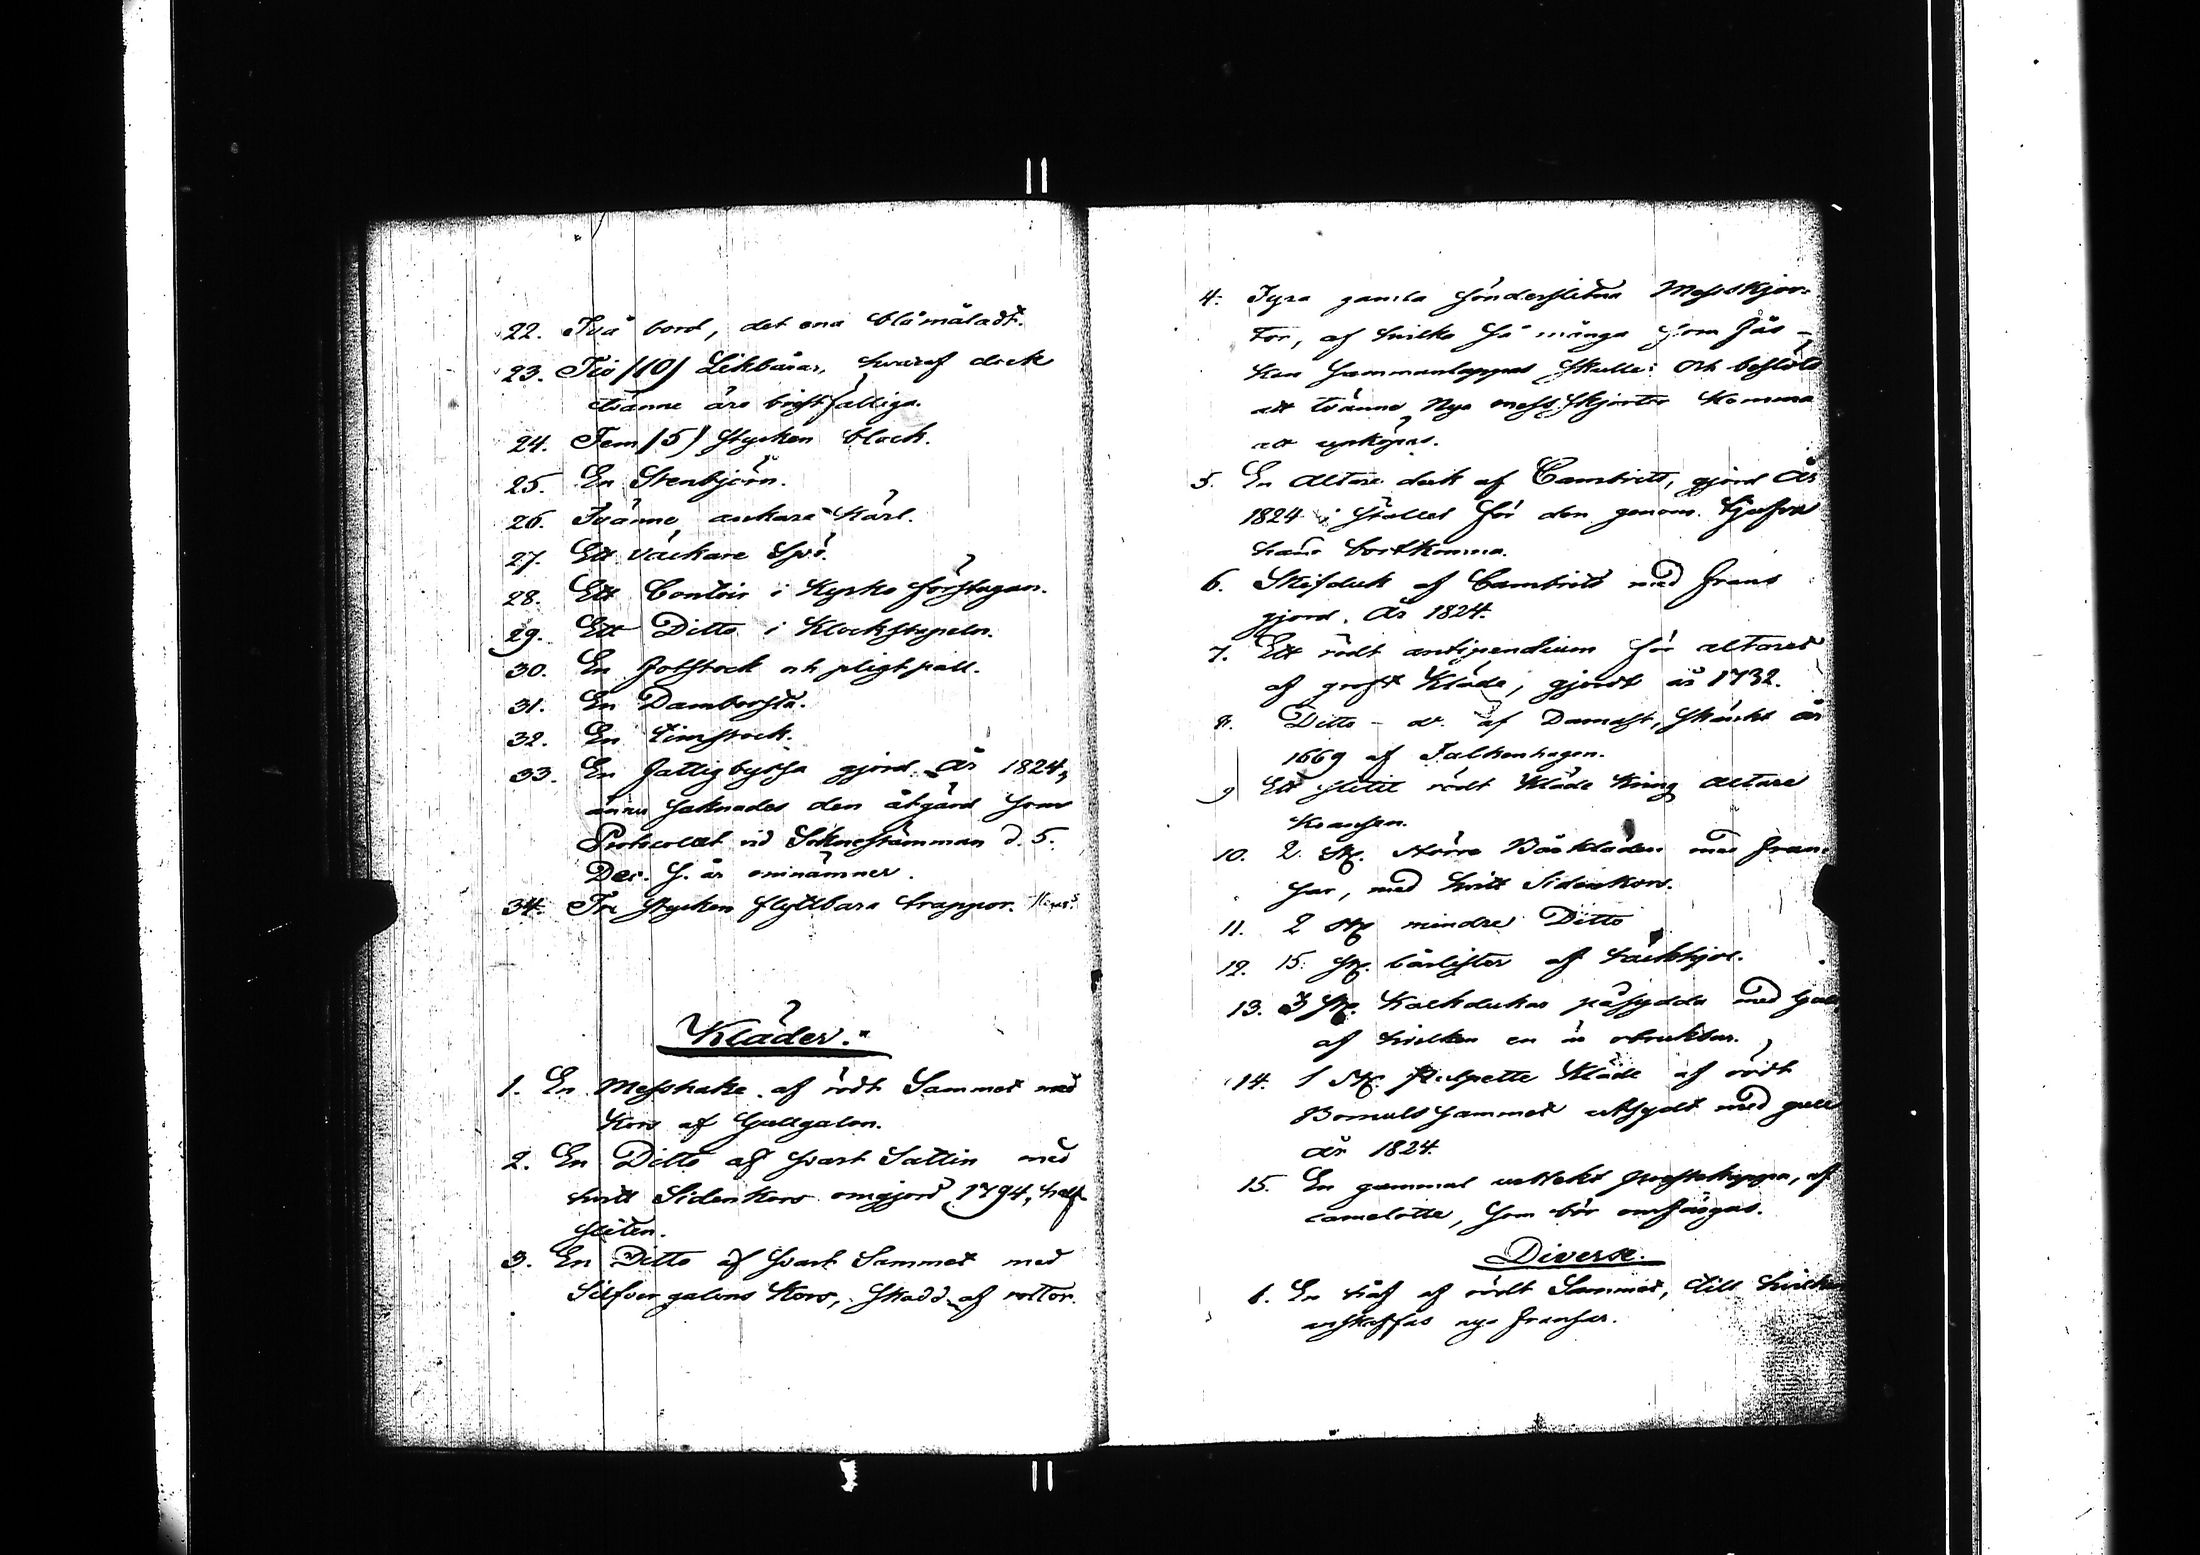 22. Två bord, det ena blåmåladt.
23. Tio /10/ Likbårar, hvaraf dock
tvänne äro bristfälliga.
24. Fem /5/ stycken block.
25. En Stenbjörn.
26. Tvänne ankare kärl.
27. Ett väckare spö.
28. Ett Contoir i Kyrko förstugan.
29. Ett Ditto i Klockstapeln.
30. En fotstock och pligtpall.
31. En Damborste.
32. En Timstock.
33. En fattigbyssa gjord År 1824,
ännu saknades den åtgärd som
Protocollet vid Soknestämman d. 5.
Dec. s. år omnämner.
34. Tre stycken flyttbara trappor.
Kläder.
1. En Messhake af rödt Sammet med
Kors af Gullgalon.
2. En Ditto af svart Sattin med
hvitt Sidenkors omgjord 1794, half
sliten.
3. En Ditto af svart Sammet med
Silfver galons Kors, skadd af rottor.
4. Fyra gamla sönderslitna Messskjor-
tor, af hvilka så många som
kan sammanlappas skulle: och beslöts
att tvänne Nya messskjortor komma
att uppköpas.
5. En Altare duk af Cambrits, gjord År
1824 i stället för den genom tjufva
hand bortkomna.
6. Skifduk af Cambrits med frans
gjord År 1824.
7. Ett rödt antipendium för altaret
af groft Kläde, gjordt år 1732.
8. Ditto - dr af Damast, skänkt år
1669 af Falkenhagen.
9 Ett slitit rödt Kläde kring altare
Kransen.
10. 2 St. större Bårkläden med fran-
sar, med hvitt Sidenkors.
11. 2 St mindre Ditto
12. 15 St. bårlister af
13. 3 St. Kalkdukar påsydda med Gull
af hvilken en är obrukbar.
14. 1 St. Pulpette Kläde af rödt
Bomuls sammet utsydt med gull
år 1824.
15. En gammal urblekt prestekappa, af
camelotte, som bör omfärgas.
Diverse.
1. En håf af rödt Sammet, till hvilken
anskaffas nya fransar.